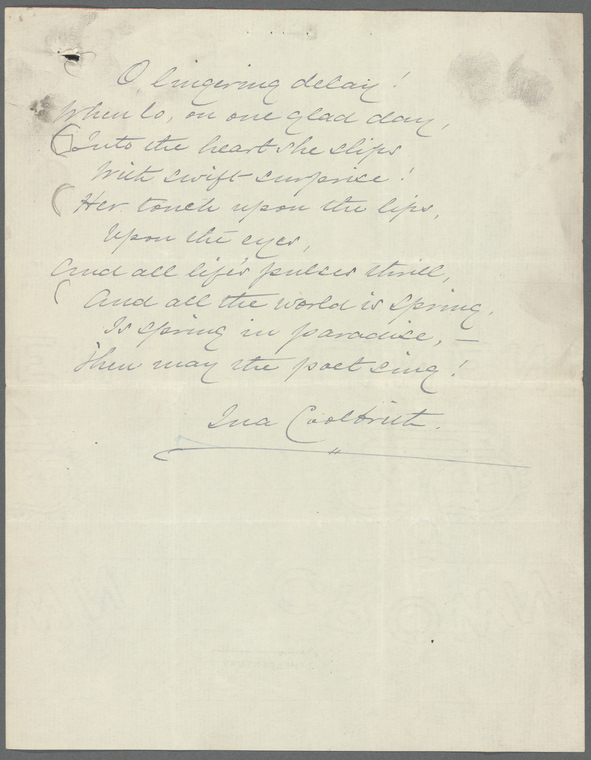 O lingering delay!
When lo, on one glad day,
Into the heart she slips
With swift surprise!
Her touch upon the lips,
Upon the eyes,
And all life's pulses thrill,
And all the world is spring,
Is spring in paradise, —
Then may the poet sing!
Ina Coolbrith.